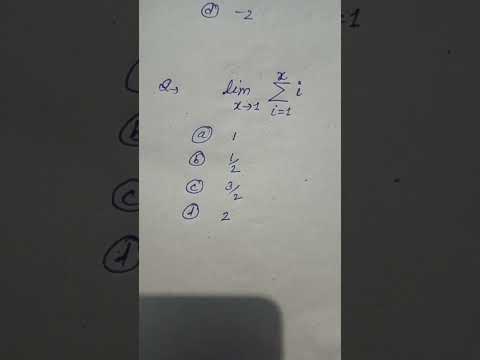 (d) -2
Q→ lim x→1 x ∑ i=1 i
(a) 1
(b) 1/2
(c) 3/2
(d) 2